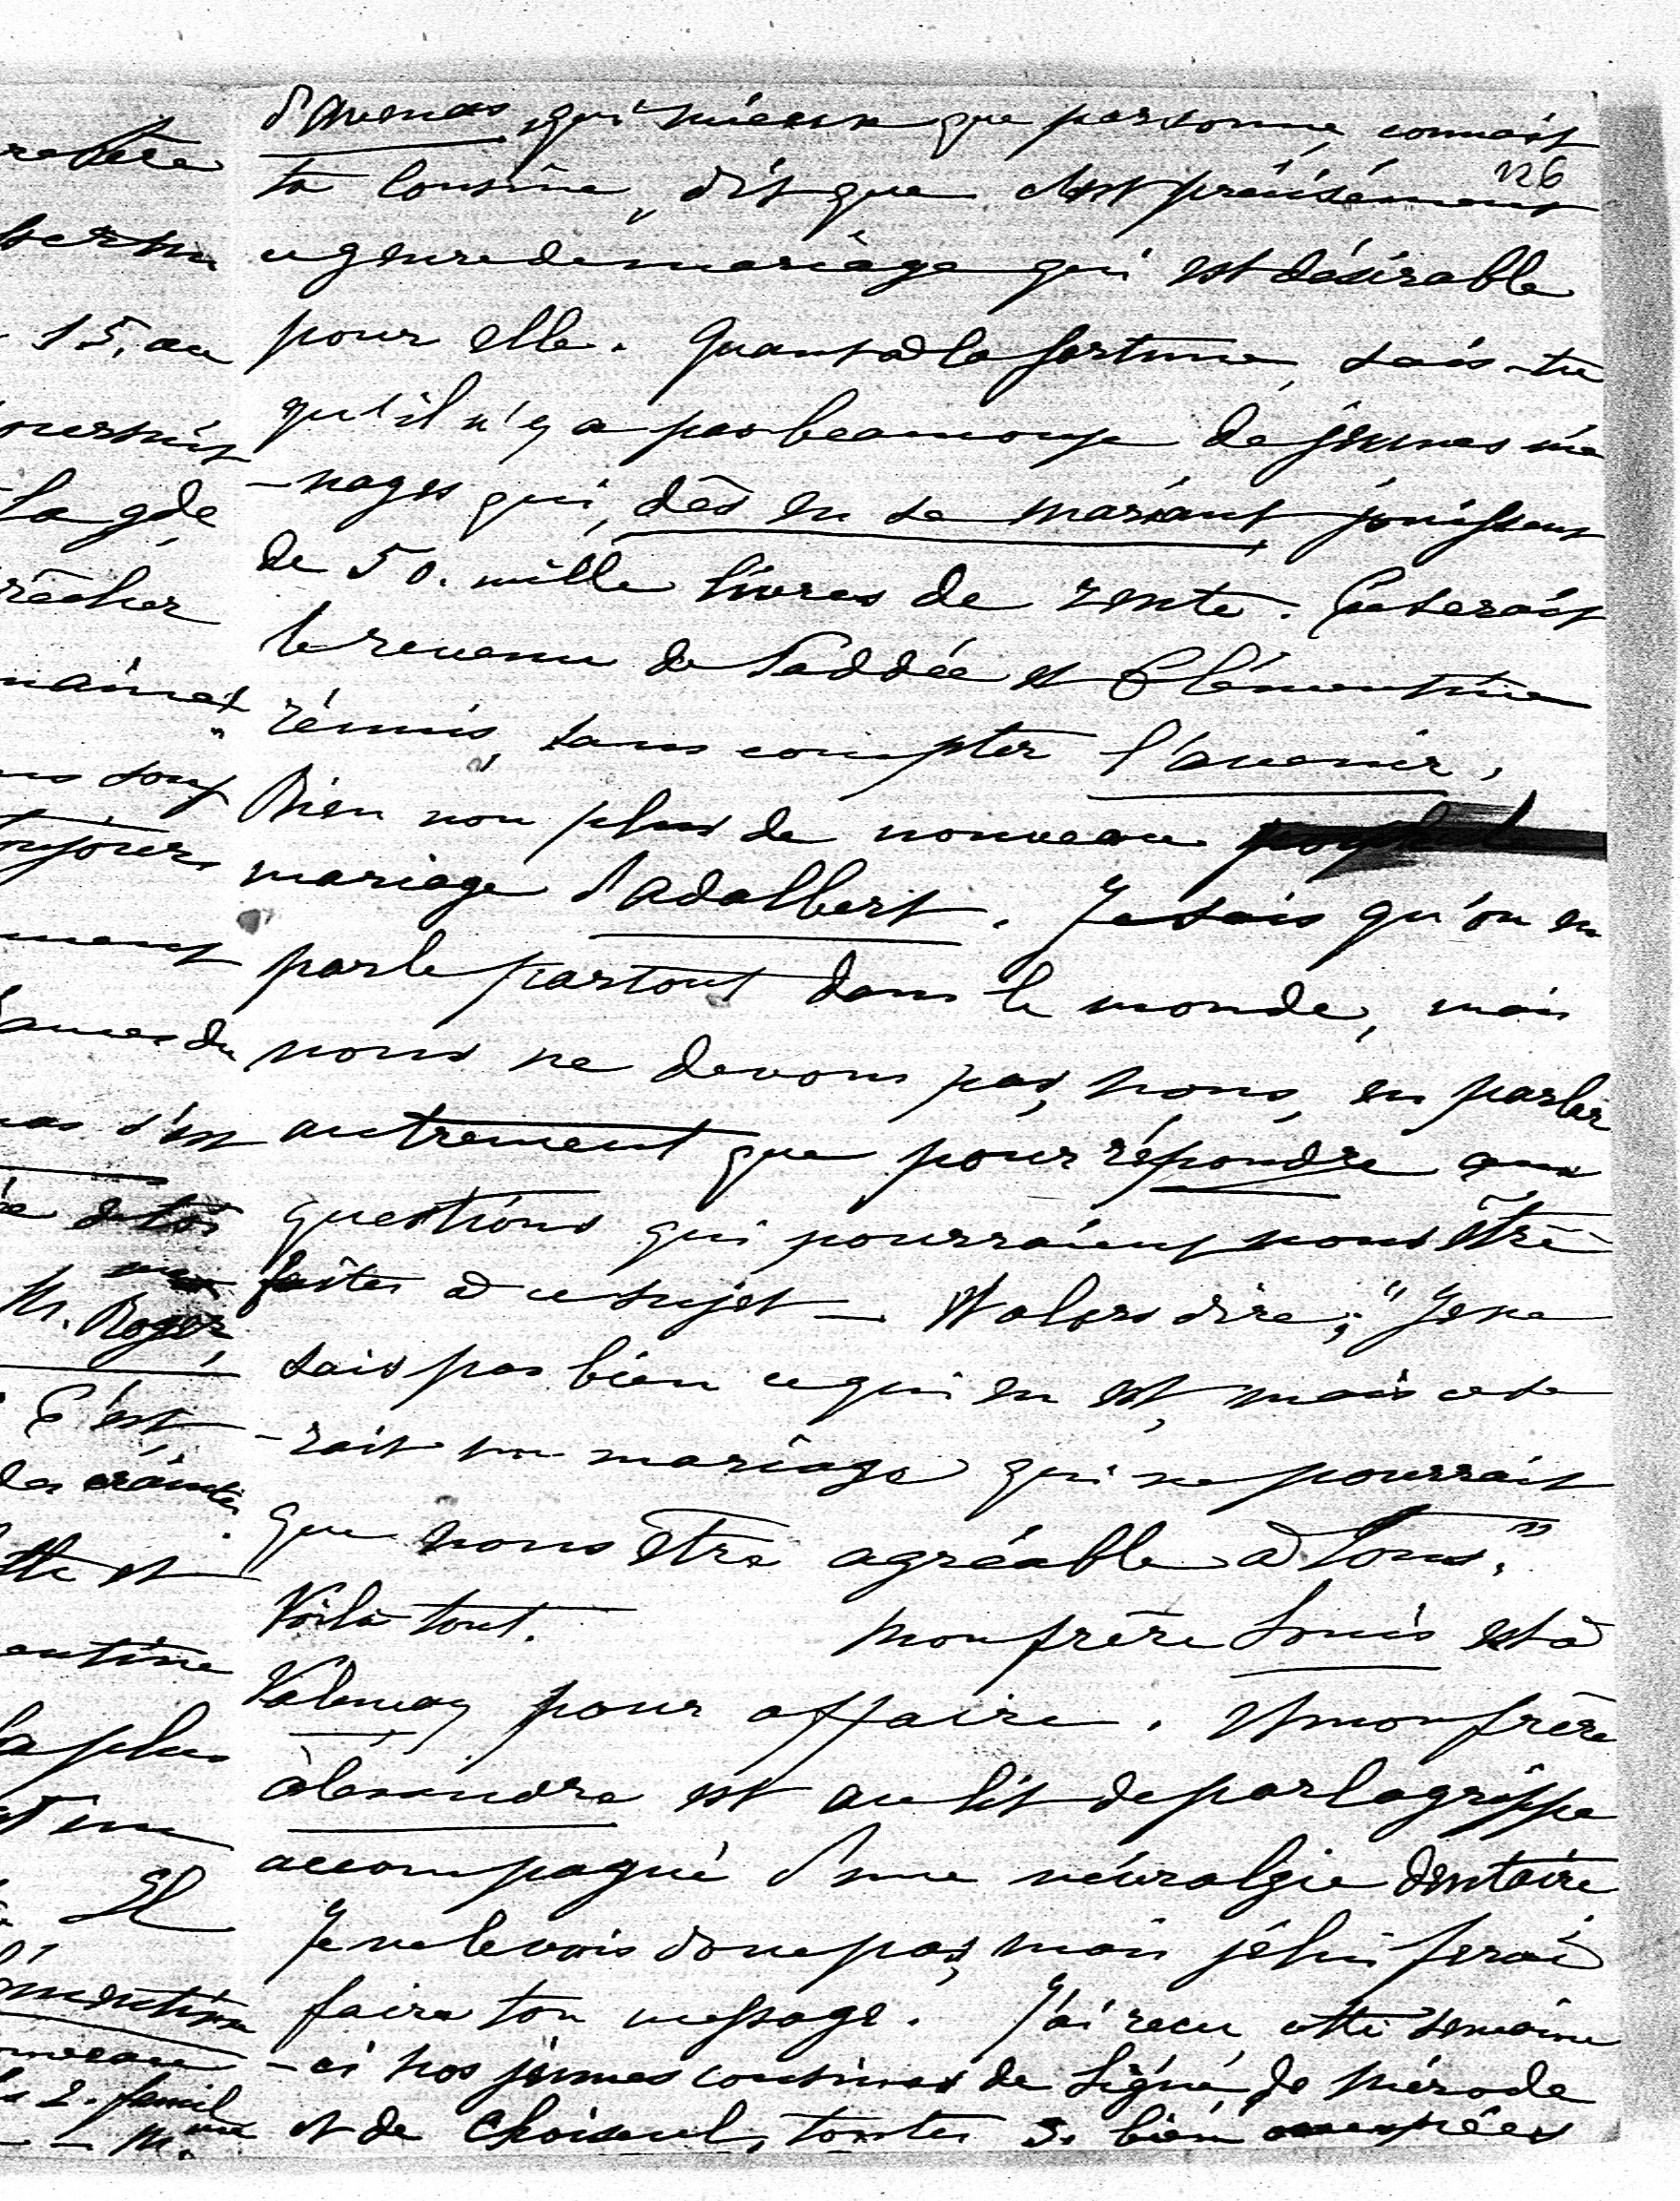 d'Avenas, qui mieux que personne, connait
126
ta cousine, dit que c'est précisément
ce genre de mariage qui est désirable
pour elle. Quant à la fortune, sais-tu
qu'il n'y a pas beaucoup de jeunes mé
-nages qui, dès en se mariant, jouissent
de 50. mille livres de rente. Ce serait
le revenu de Taddée et Clémentine
réunis, sans compter l'avenir.
Rien non plus de nouveau
mariage d'Adalbert. Je sais qu'on en
parle partout dans le monde, mais
nous ne devons pas, nous, en parler
autrement que pour répondre aux
questions qui pourraient nous être
faites à ce sujet — Et alors dire; "Je ne
sais pas bien ce qui en est, mais ce se
-rait un mariage qui ne pourrait
que nous être agréable à tous."
Voilà tout. Mon frère Louis est à
Valençay pour affaire. Et mon frère
Alexandre est au lit de par la grippe
accompagné d'une névralgie dentaire.
Je ne le vois donc pas, mais je lui ferai
faire ton message. J'ai reçu cette semaine
-ci nos jeunes cousines de Ligne, de Mérode
et de Choiseul, toutes 3. bien occupées